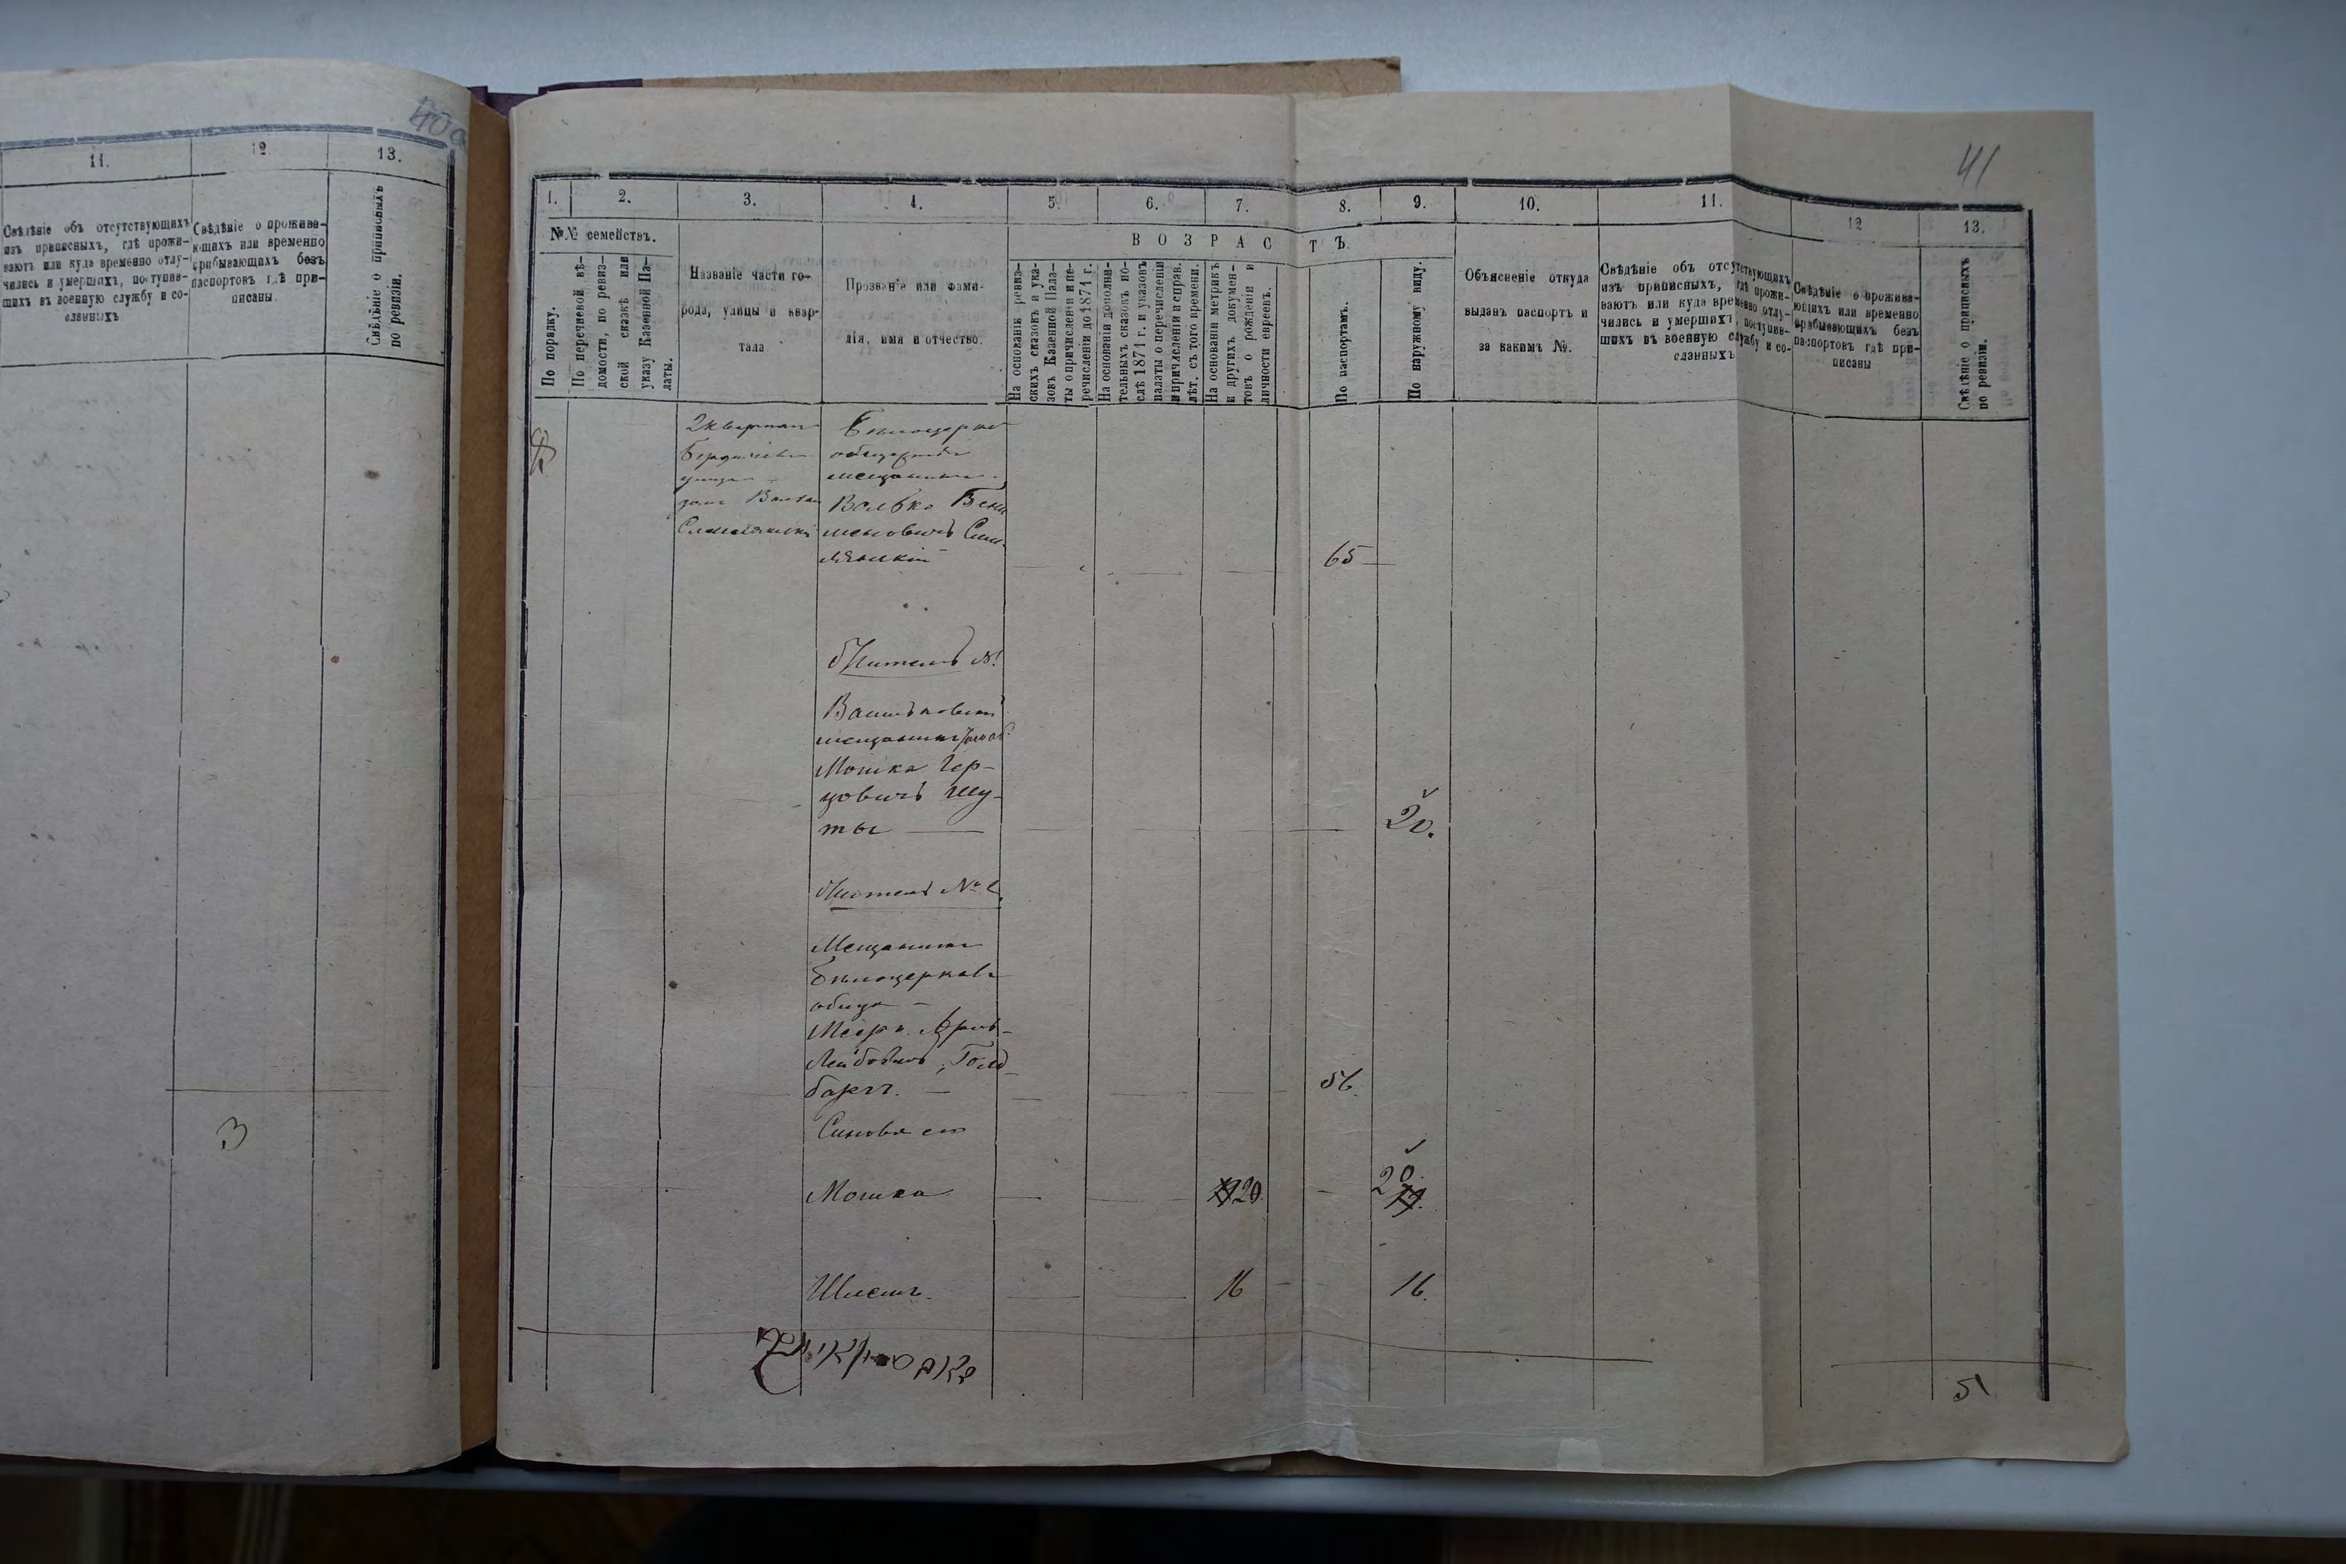 40
11.
12
13.
Свѣдѣніе объ отсутствующихъ
изъ приписныхъ, гдѣ прожи-
ваютъ или куда временно отлу-
чились и умершихъ, поступив-
шихъ въ военную службу и со-
сланныхъ
Свѣдѣніе о прожива-
ющихъ или временно
прибывающихъ безъ
паспортовъ гдѣ при-
писаны.
Свѣдѣніе о приписныхъ
по ревизіи.
3
41
1.
2.
3.
4.
5.
6.
7.
8.
9.
10.
11.
12
13.
№№ семействъ.
По порядку.
По перечневой вѣ-
домости, по ревиз-
ской сказкѣ или
указу Казенной Па-
латы.
Названіе части го-
рода, улицы и квар-
тала
Прозваніе или фами-
лія, имя и отчество.
ВОЗРАСТЪ
На основаніи ревиз-
скихъ сказокъ и ука-
зовъ Казенной Пала-
ты о причисленіи и пе-
речисленіи до 1871 г.
На основаніи дополни-
тельныхъ сказокъ по-
слѣ 1871 г. и указовъ
палаты о перечисленіи
и причисленіи и справ.
лѣт. съ того времени.
На основаніи метрикъ
и другихъ докумен-
товъ о рожденіи и
личности евреевъ.
По паспортамъ.
По наружному виду.
Объясненіе откуда
выданъ паспортъ и
за какимъ №.
Свѣдѣніе объ отсутствующихъ
изъ приписныхъ, гдѣ прожи-
ваютъ или куда временно отлу-
чились и умершихъ, поступив-
шихъ въ военную службу и со-
сланныхъ
Свѣдѣніе о прожива-
ющихъ или временно
прибывающихъ безъ
паспортовъ гдѣ при-
писаны
Свѣдѣніе о приписныхъ
по ревизіи.
2 квартал
улица
домъ
общества
мещанинъ
Волько Бени
меновичъ Сми
лянскій
65
Житель №1
Васильковскій
мещанинъ
Мошка Гер-
цовичъ Шу-
ты
20.
Житель № 2.
Мещанинъ
Бѣлоцерковс
обще
Лейбовичъ, Голд
бергъ.
56.
Синовя его
Мошка
20.
20.
19.
Шлема
16
16.
5